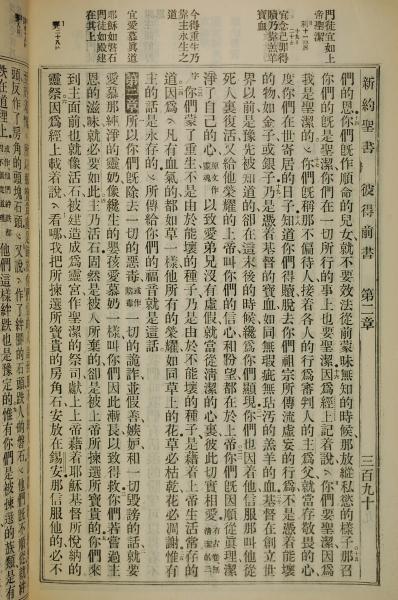 新約聖書 彼得前書 第二章 三百九十
門徒宜如上
帝聖潔
宜念己罪得
贖乃靠羔羊
寶血
今得重生乃
靠主永生之
道
宜愛慕真道
耶穌如磐石
門徒如殿建
在其上
們的恩你們旣作順命的兒女就不要效法從前蒙昧無知的時候那放縱私慾的樣子那召
你們的旣是聖潔你們在一切所行的事上也要聖潔因爲經上記着說你們要聖潔因爲
我是聖潔的你們旣稱那不偏待人接着各人的行爲審判人的主爲父就當存敬畏的心
度你們在世寄居的日子知道你們得贖脫去你們祖宗所傳流虛妄的行爲不是憑着能壞
的物如金子或銀子乃是憑着基督的寶血如同無瑕疵無玷汚的羔羊的血基督在創立世
界以前是豫先被知道的卻在這末後的時候纔爲你們顯現你們也因着他信服那叫他從
死人裏復活又給他榮耀的上帝叫你們的信心和盼望都在於上帝你們旣因順從眞理潔
淨了自己的心原文作靈魂以致愛弟兄沒有虛假就當從淸潔的心裏彼此切實相愛有古卷無淸潔的三
字你們蒙了重生不是由於能壞的種子乃是由於不能壞的種子是藉着上帝生活常存的
道因爲凡有血氣的都如草一樣他所有的榮耀如同草上的花草必枯乾花必凋謝惟有
主的話是永存的所傳給你們的福音就是這話
第二章所以你們旣除去一切的惡毒或作陰毒一切的詭詐並假善嫉妒和一切毀謗的話就要
愛慕那純淨的靈奶像纔生的嬰孩愛慕奶一樣叫你們因此漸長以致得救你們若嘗過主
恩的滋味就必要如此主乃活石固然是被人所棄的卻是被上帝所揀選所寶貴的你們來
到主面前也就像活石被建造成爲靈宮作聖潔的祭司獻上上帝藉着耶穌基督所悅納的
靈祭因爲經上載着說看哪我把所揀選所寶貴的房角石安放在錫安那信服他的必不